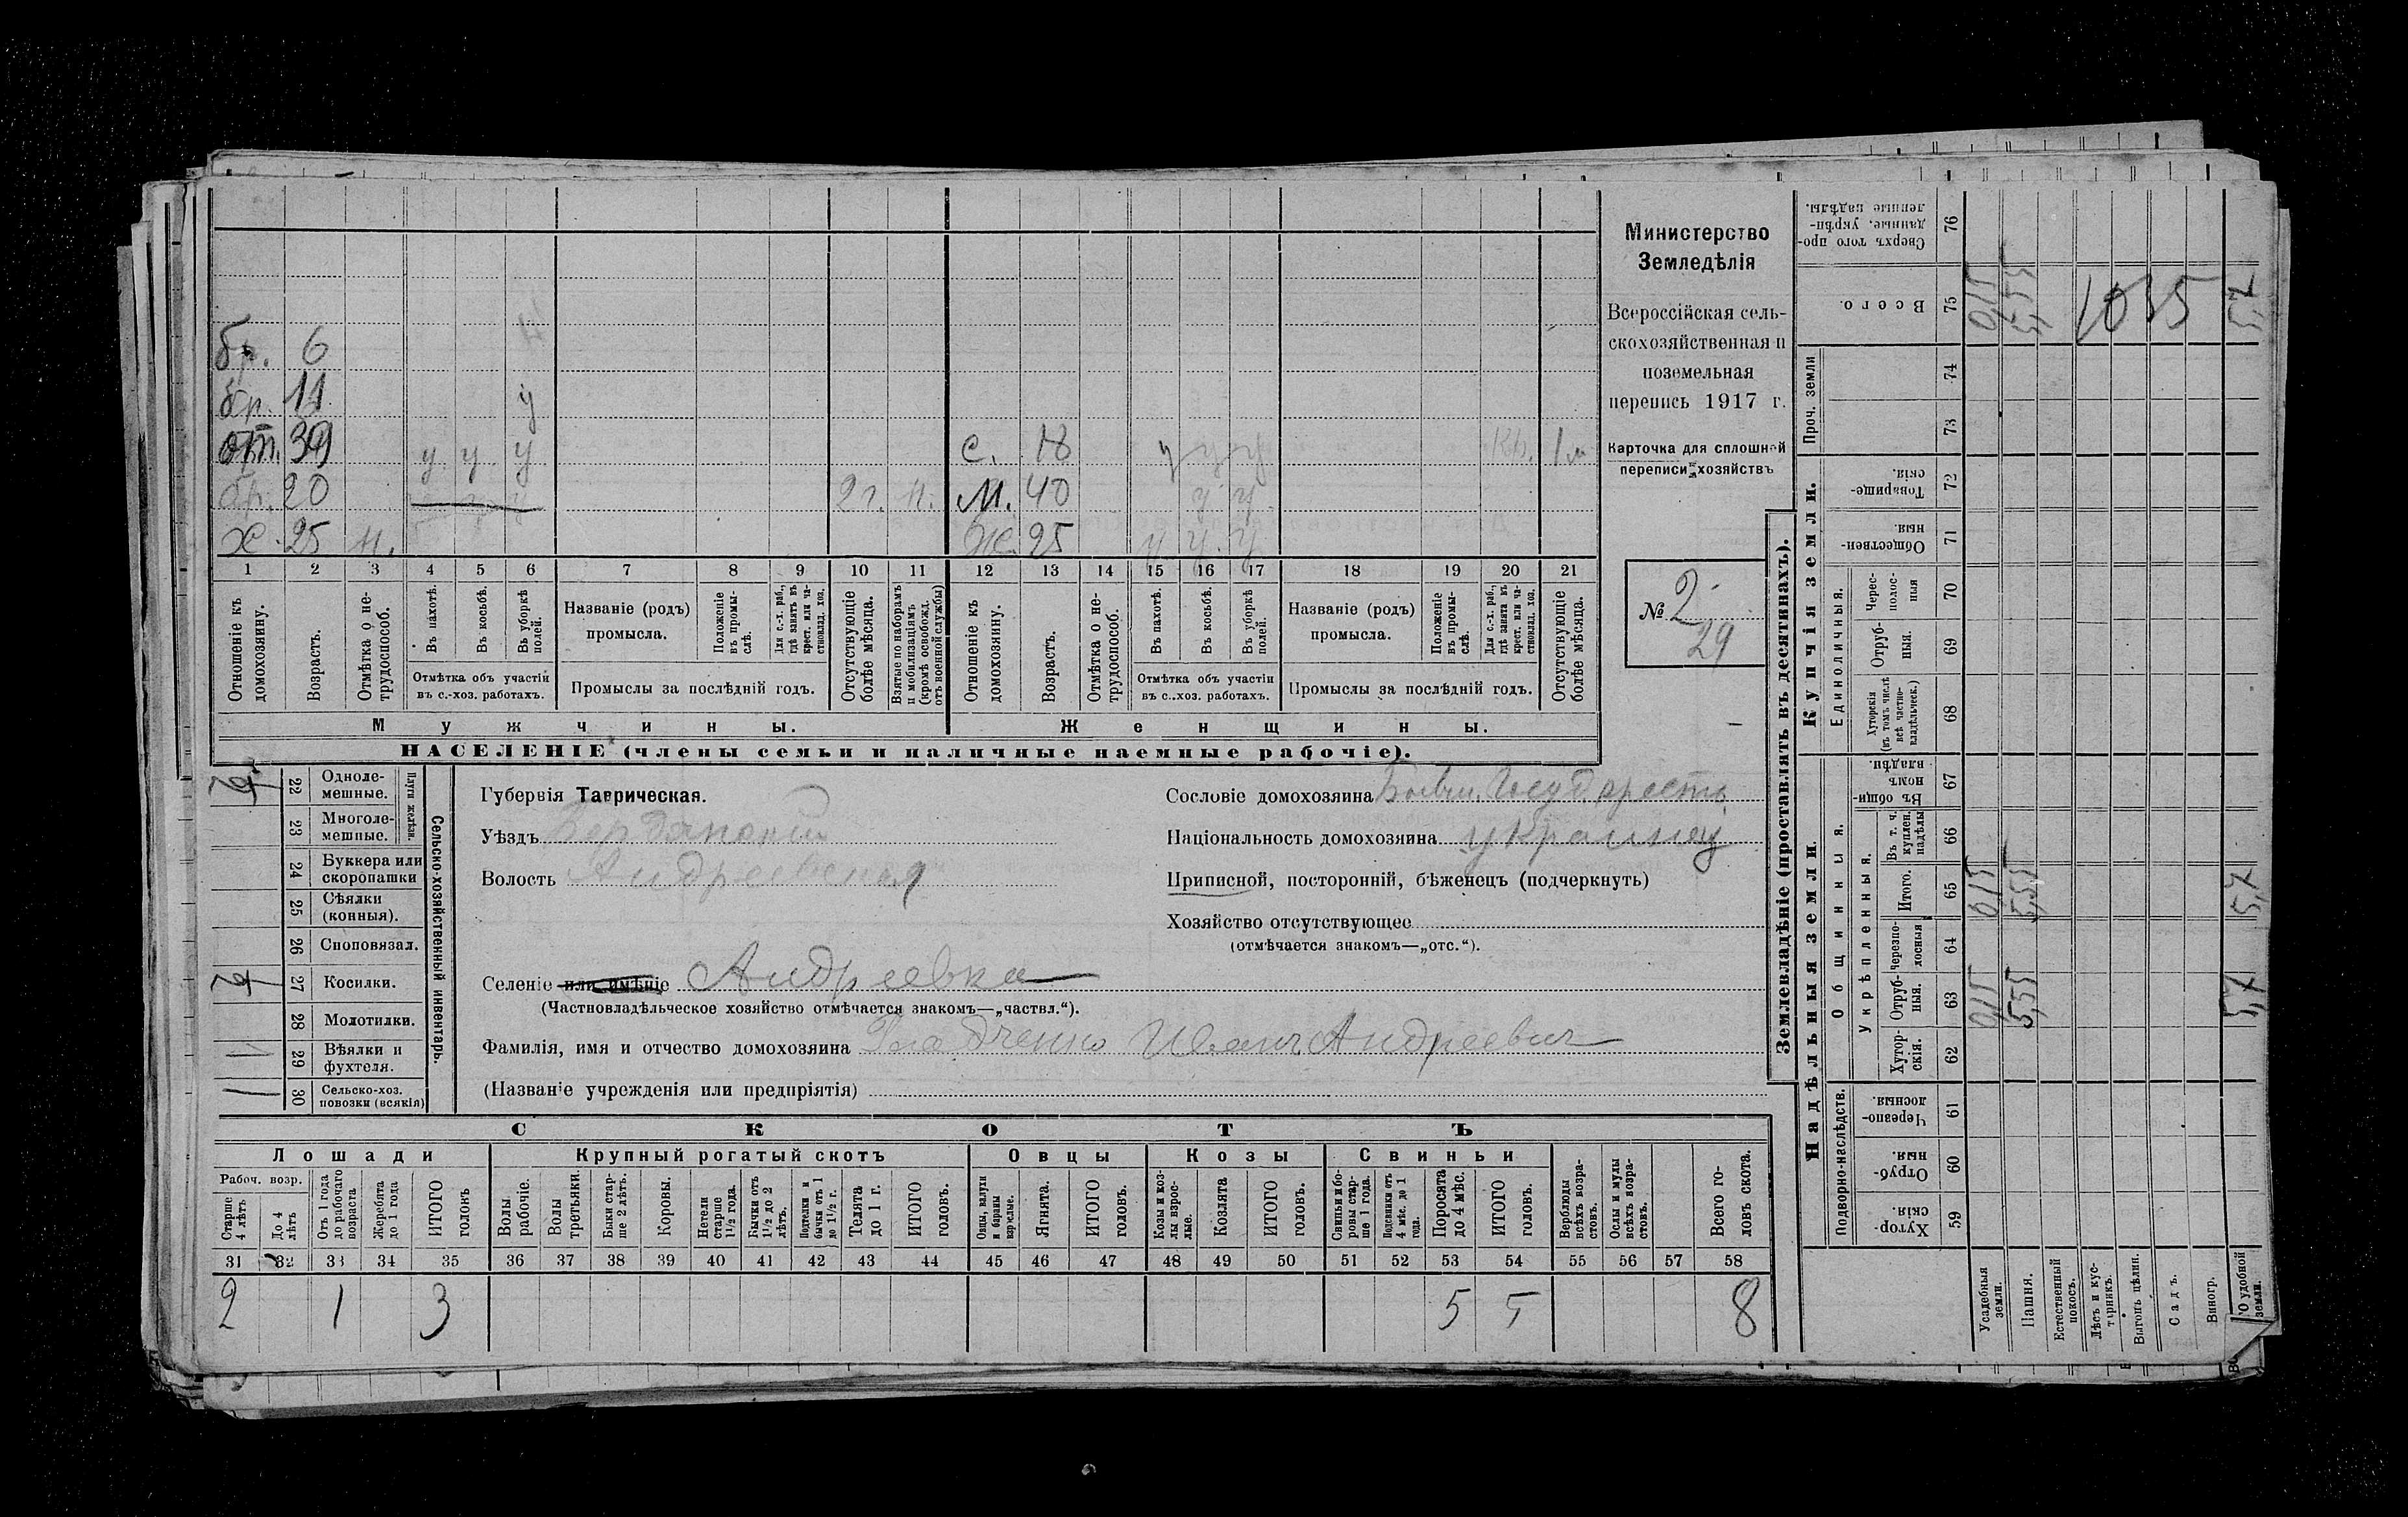 бр. 6
бр. 11 у
от. 39 у у у с. 18 у у у 1 м
бр. 20 2 г. н. м. 40 у у
х. 25 н. ж. 25 у у у
1 2 3 4 5 6 7 8 9 10 11 12 13 14 15 16 17 18 19 20 21
Отношеніе къ домохозяину.
Возрастъ.
Отмѣтка о не-трудоспособ.
Въ пахотѣ.
Въ косьбѣ.
Въ уборкѣ полей.
Отмѣтка объ участіи
въ с.-хоз. работахъ.
Названіе (родъ)
промысла.
Положеніе въ промы-слѣ.
Для с.-х. раб., гдѣ занятъ въ крест. или ча-стновлад. хоз.
Промыслы за послѣдній годъ.
Отсутствующіе болѣе мѣсяца.
Взятые по наборамъ и мобилизаціямъ (кромѣ освобожд. отъ военной службы)
Отношеніе къ домохозяину.
Возрастъ.
Отмѣтка о не-трудоспособ.
Въ пахотѣ.
Въ косьбѣ.
Въ уборкѣ полей.
Отмѣтка объ участіи
въ с.-хоз. работахъ.
Названіе (родъ)
промысла.
Положеніе въ промы-слѣ.
Для с.-х. раб., гдѣ занята въ крест. или ча-стновлад. хоз.
Промыслы за послѣдній годъ.
Отсутствующіе болѣе мѣсяца.
Мужчины. Женщины.
НАСЕЛЕНІЕ (члены семьи и наличные наемные рабочіе).
Министерство
Земледѣлія
Всероссійская сель-
скохозяйственная и
поземельная
перепись 1917 г.
Карточка для сплошной
переписи хозяйствъ
№ 2
29
22 Одноле-мешные.
23 Многоле-мешные.
Плуги желѣзн.
24 Буккера или скоропашки
25 Сѣялки (конныя).
26 Сноповязал.
27 Косилки.
28 Молотилки.
29 Вѣялки и фухтеля.
1 30 Сельско-хоз. повозки (всякія)
Сельско-хозяйственный инвентарь.
Губернія Таврическая.
Уѣздъ Бердянскій
Волость Андреевская
Селеніе или имѣніе Андреевка
(Частновладѣльческое хозяйство отмѣчается знакомъ—„частвл.“).
Фамилія, имя и отчество домохозяина Иванъ Андреевич
(Названіе учрежденія или предпріятія)
Сословіе домохозяина Бывш. Государств.
Національность домохозяина украинец
Приписной, посторонній, бѣженецъ (подчеркнуть)
Хозяйство отсутствующее
(отмѣчается знакомъ—„отс.“).
СКОТЪ
Лошади Крупный рогатый скотъ Овцы Козы Свиньи
Рабоч. возр.
Старше 4 лѣтъ
До 4 лѣтъ
Отъ 1 года до рабочаго возраста
Жеребята до 1 года
ИТОГО головъ
Волы рабочіе.
Волы третьяки.
Быки стар-ше 2 лѣтъ.
Коровы.
Нетели старше 1 1/2 года.
Бычки отъ 1 1/2 до 2 лѣтъ.
Подтелки и бычки отъ 1 до 1 1/2 г.
Телята до 1 г.
ИТОГО головъ.
Овцы, валухи и бараны взрослые.
Ягнята.
ИТОГО головъ.
Козы и коз-лы взрос-лые.
Козлята
ИТОГО головъ.
Свиньи и бо-ровы стар-ше 1 года.
Подсвинки отъ 4 мѣс. до 1 года.
Поросята до 4 мѣс.
ИТОГО головъ.
Верблюды всѣхъ возра-стовъ.
Ослы и мулы всѣхъ возра-стовъ.
Всего го-ловъ скота.
31 32 33 34 35 36 37 38 39 40 41 42 43 44 45 46 47 48 49 50 51 52 53 54 55 56 57 58
2 1 3 5 5 8
Землевладѣніе (проставлять въ десятинахъ).
Надѣльныя земли. Купчія земли. Проч. земли
Подворно-наслѣдств. Общинныя. Единоличныя.
Укрѣпленныя.
Хутор-скія. 59
Отруб-ныя. 60
Черезпо-лосныя. 61
Хутор-скія. 62
Отруб-ныя. 63
Черезпо-лосныя 64
Итого. 65
Въ т. ч. куплен. надѣлы 66
Въ общин-номъ владѣн. 67
Хуторскія (въ томъ числѣ всѣ частно-владѣльчек.) 68
Отруб-ныя. 69
Черес-полос-ныя 70
Обществен-ныя. 71
Товарище-скія. 72
73
74
Всего. 75
Сверхъ того про-данные, укрѣп-ленные надѣлы. 76
Усадебныя земли. 0,15 0,15 0,15
Пашня. 5,55 5,55 5,55
Естественный покосъ.
Лѣсъ и кус-тарникъ.
Выгонъ цѣлин.
Садъ.
Виногр.
О удобной земли. 5,7 5,7 5,7
1035